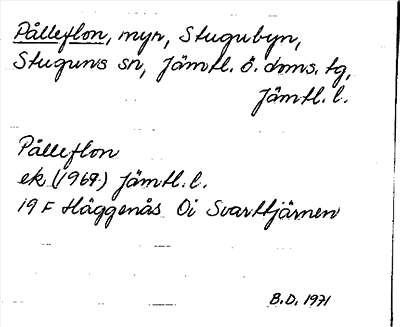 Pålleflon, myr, Stugubyn,
Stuguns sn, Jämtl. ö. doms. tg,
Jämtl. l.
Pålleflon
ek (1969) Jämtl. l.
19 F Häggenås Oi Svarttjärnen
B.D. 1971